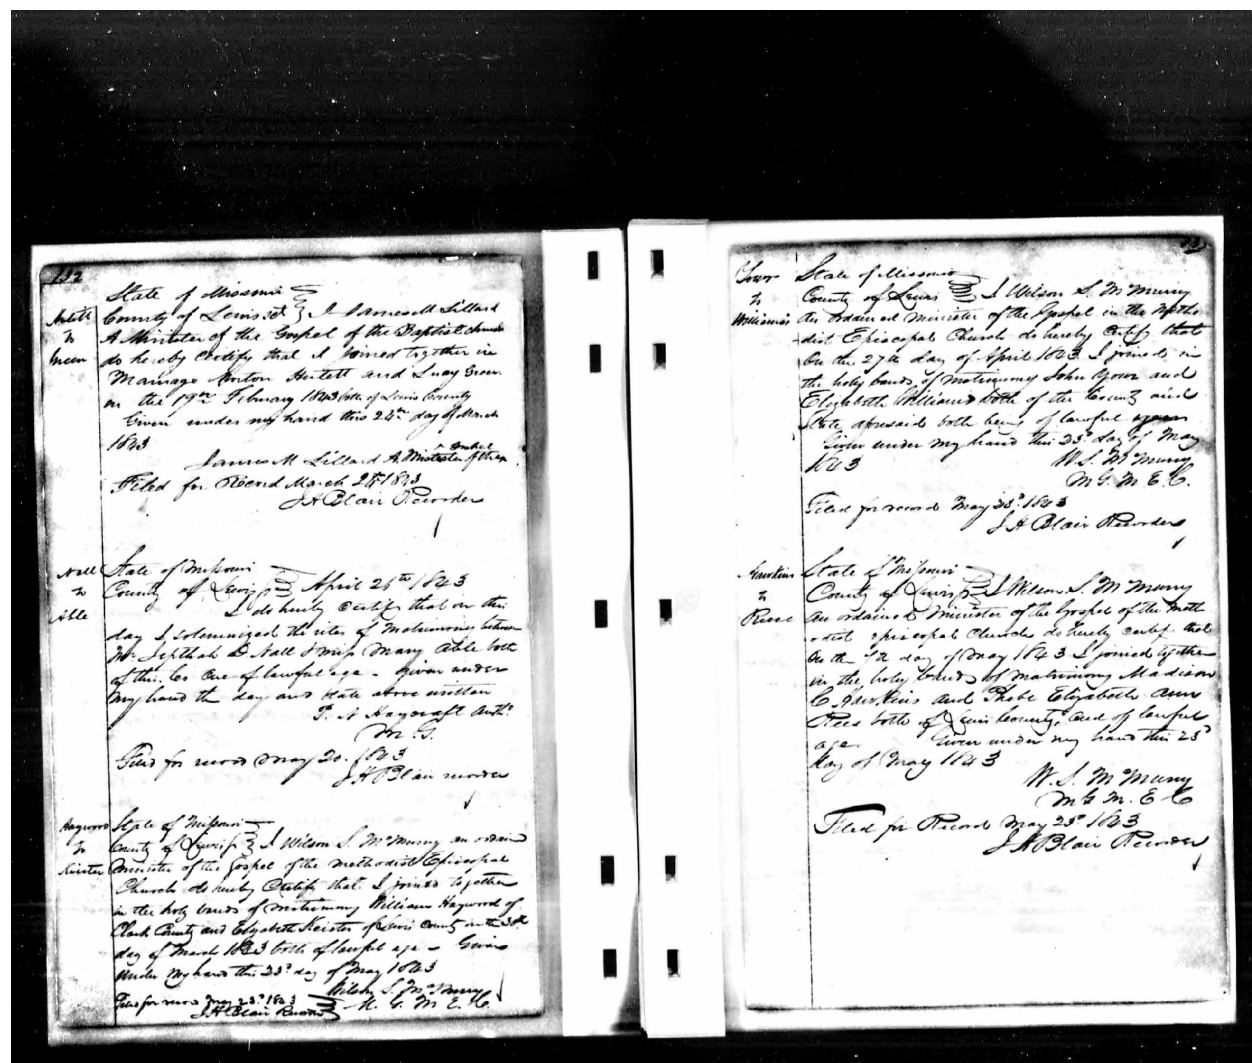 132
Hulett
to
Green
State of Missouri
County of Lewis sct I James M Lillard
A Minister of the Gospel of the Baptist church
do hereby certify that I joined together in
Marriage Morton Hulett and Lucy Green
on the 19th February 1843 both of Lewis County
Given under my hand this 24th day of March
1843
James M Lillard A. Minister of the
Gospel
Filed for Record March 24th 1843
J A Blair Recorder
Nall
to
Able
State of Missouri
County of Lewis ss April 26th 1843
I do hereby certify that on this
day I solemnized the rites of Matrimony between
Mr Jepthah D Nall & miss Mary Able both
of this Co and of lawful age - given under
my hand the day and date above written
P. N Haycraft
M. G.
Filed for record May 20. 1843
J A Blair recorder
Haywood
to
Keister
State of Missouri
County of Lewis ss I Wilson S. McMurry an ordained
Minister of the Gospel of the Methodist Episcopal
Church do hereby Certify that I joined together
in the holy bands of matrimony William Haywood of
Clark County and Elizabeth Keister of Lewis County on the 30th
day of March 1843 both of lawful age - Given
under my hand this 23d day of May 1843
Wilson S. McMurry
M. G. M. E. C.
Filed for record May 23d 1843
J. A Blair Recorder
to
Williams
State of Missouri
County of Lewis I Wilson S. McMurry
An ordained minister of the Gospel in the Metho
dist Episcopal Church do hereby certify that
On the 27th day of April 1843 I joined in
the holy bands of matrimony John and
Elizabeth Williams both of the County and
State aforesaid both being of lawful
Given under my hand this 23d day of May
1843
W. S. McMurry
M G. M E. C.
Filed for record May 23d 1843
J A Blair Recorder
Hawkins
to
Reese
State of Missouri
County of Lewis ss I Wilson S. McMurry
an ordained minister of the Gospel of the Meth
odist episcopal church do hereby certify that
On the day of May 1843 I joined together
in the holy bands of matrimony Madison
C. Hawkins and Phebe Elizabeth Ann
Rees both of Lewis County, and of lawful
age. Given under my hand this 23d
day of May 1843
W. S. McMurry
M G M. E C
Filed for Record May 23d 1843
J A Blair Recorder